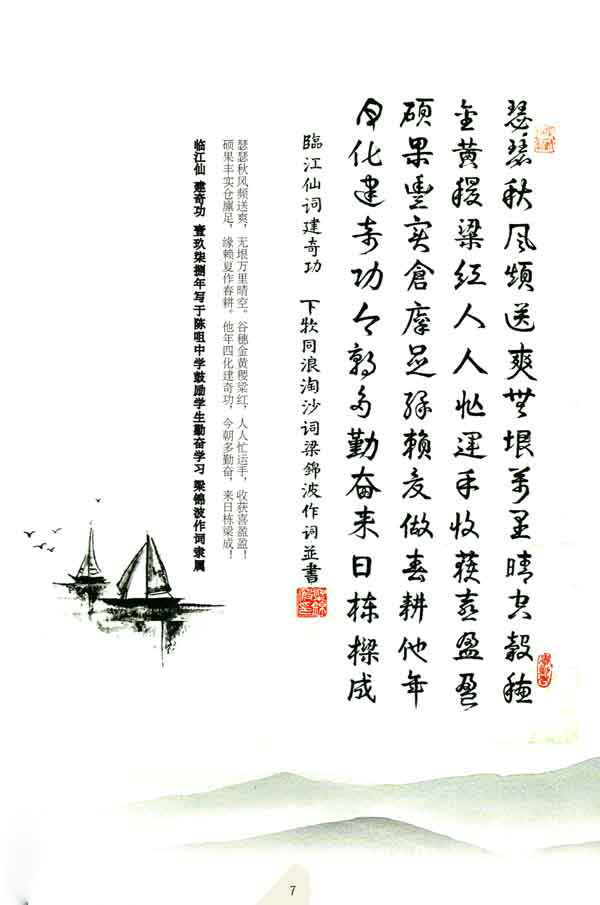 瑟瑟秋風頻送爽無垠萬里晴空穀穗
金黃稷梁紅人人忙運手收获喜盈盈
碩果豐实倉廪足缘賴夏做春耕他年
四化建奇功今朝多勤奋来日栋樑成
臨江仙词建奇功 下牧同浪淘沙词梁錦波作词並書
瑟瑟秋风频送爽，无垠万里晴空。谷穗金黄稷梁红，人人忙运手，收获喜盈盈！
硕果丰实仓廪足，缘赖夏作春耕。他年四化建奇功，今朝多勤奋，来日栋梁成！
临江仙 建奇功 壹玖柒捌年写于陈咀中学鼓励学生勤奋学习 梁锦波作词隶属
7